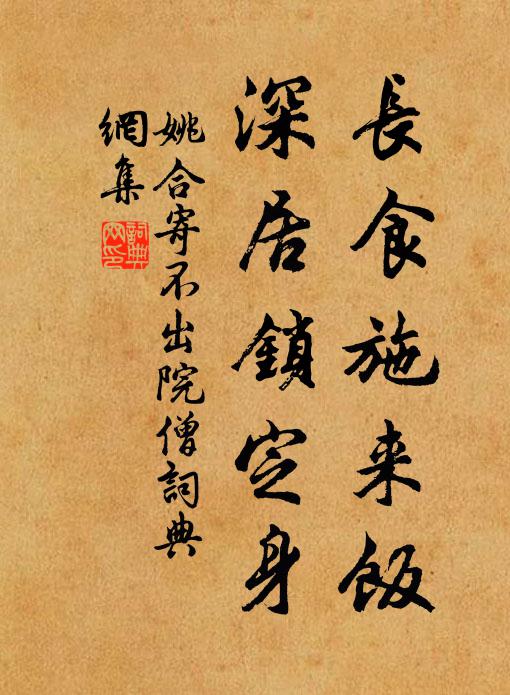 長食施来飯
深居鎖定身
姚合寄不出院僧詞典
網集
詞典
网印